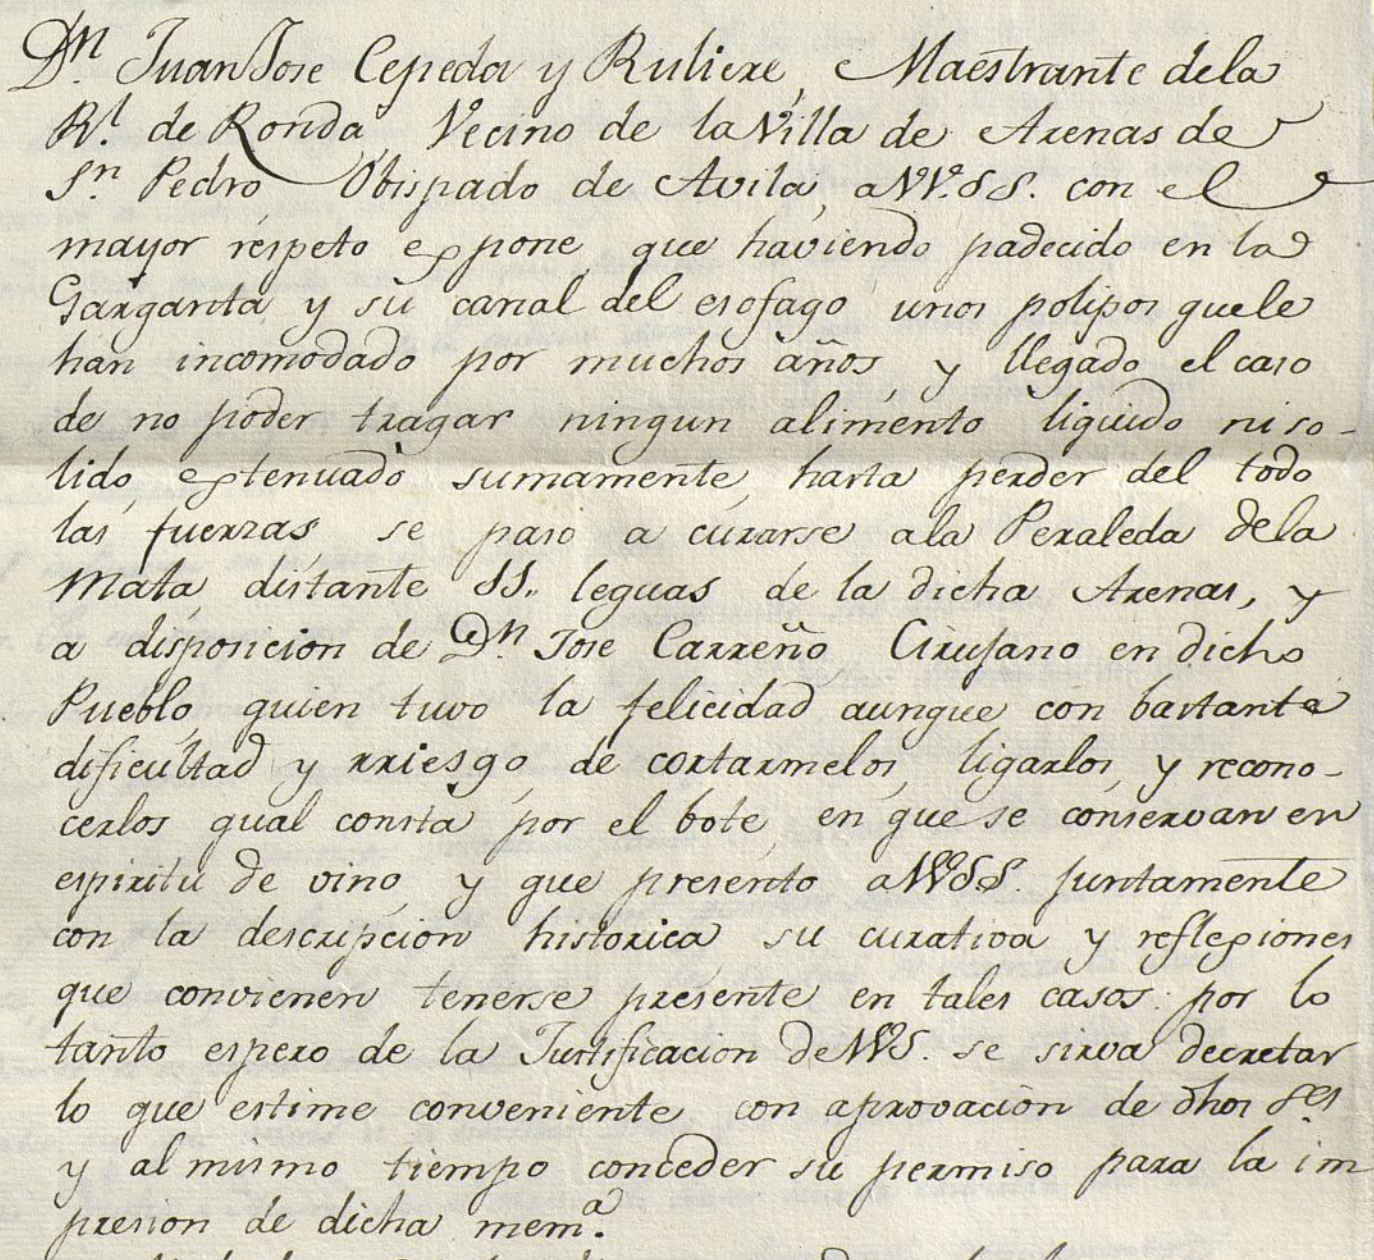 Dn. Juan Jose Cepeda y Ruliere, Maestrante dela
Rl. de Ronda, Vecino de la Villa de Arenas de
Sn. Pedro Obispado de Avila, a VV. SS. con el
mayor respeto expone, que haviendo padecido en la
Garganta, y su canal del esofago unos polipos quele
han incomodado por muchos años, y llegado el caso
de no poder tragar ningun alimento liquido ni so-
lido, extenuado sumamente, hasta perder del todo
las fuerzas, se pasó a curarse a la Peraleda dela
Mata, distante 11,, leguas de la dicha Arenas, y
a disposicion de Dn. Jose Carreño, Cirujano en dicho
Pueblo, quien tuvo la felicidad aunque con bastante
dificultad y rriesgo, de cortarmelos, ligarlos, y recono-
cerlos qual consta por el bote, en que se conservan en
espiritu de vino, y que presento a VV. SS. juntamente
con la descripcion historica, su curativa y reflexiones
que convienen tenerse presente en tales casos: por lo
tanto espero de la Justificacion de VVS. se sirva decretar
lo que estime conveniente con aprovacion de dhos Ses.
y al mismo tiempo conceder su permiso para la im
presion de dicha mema.